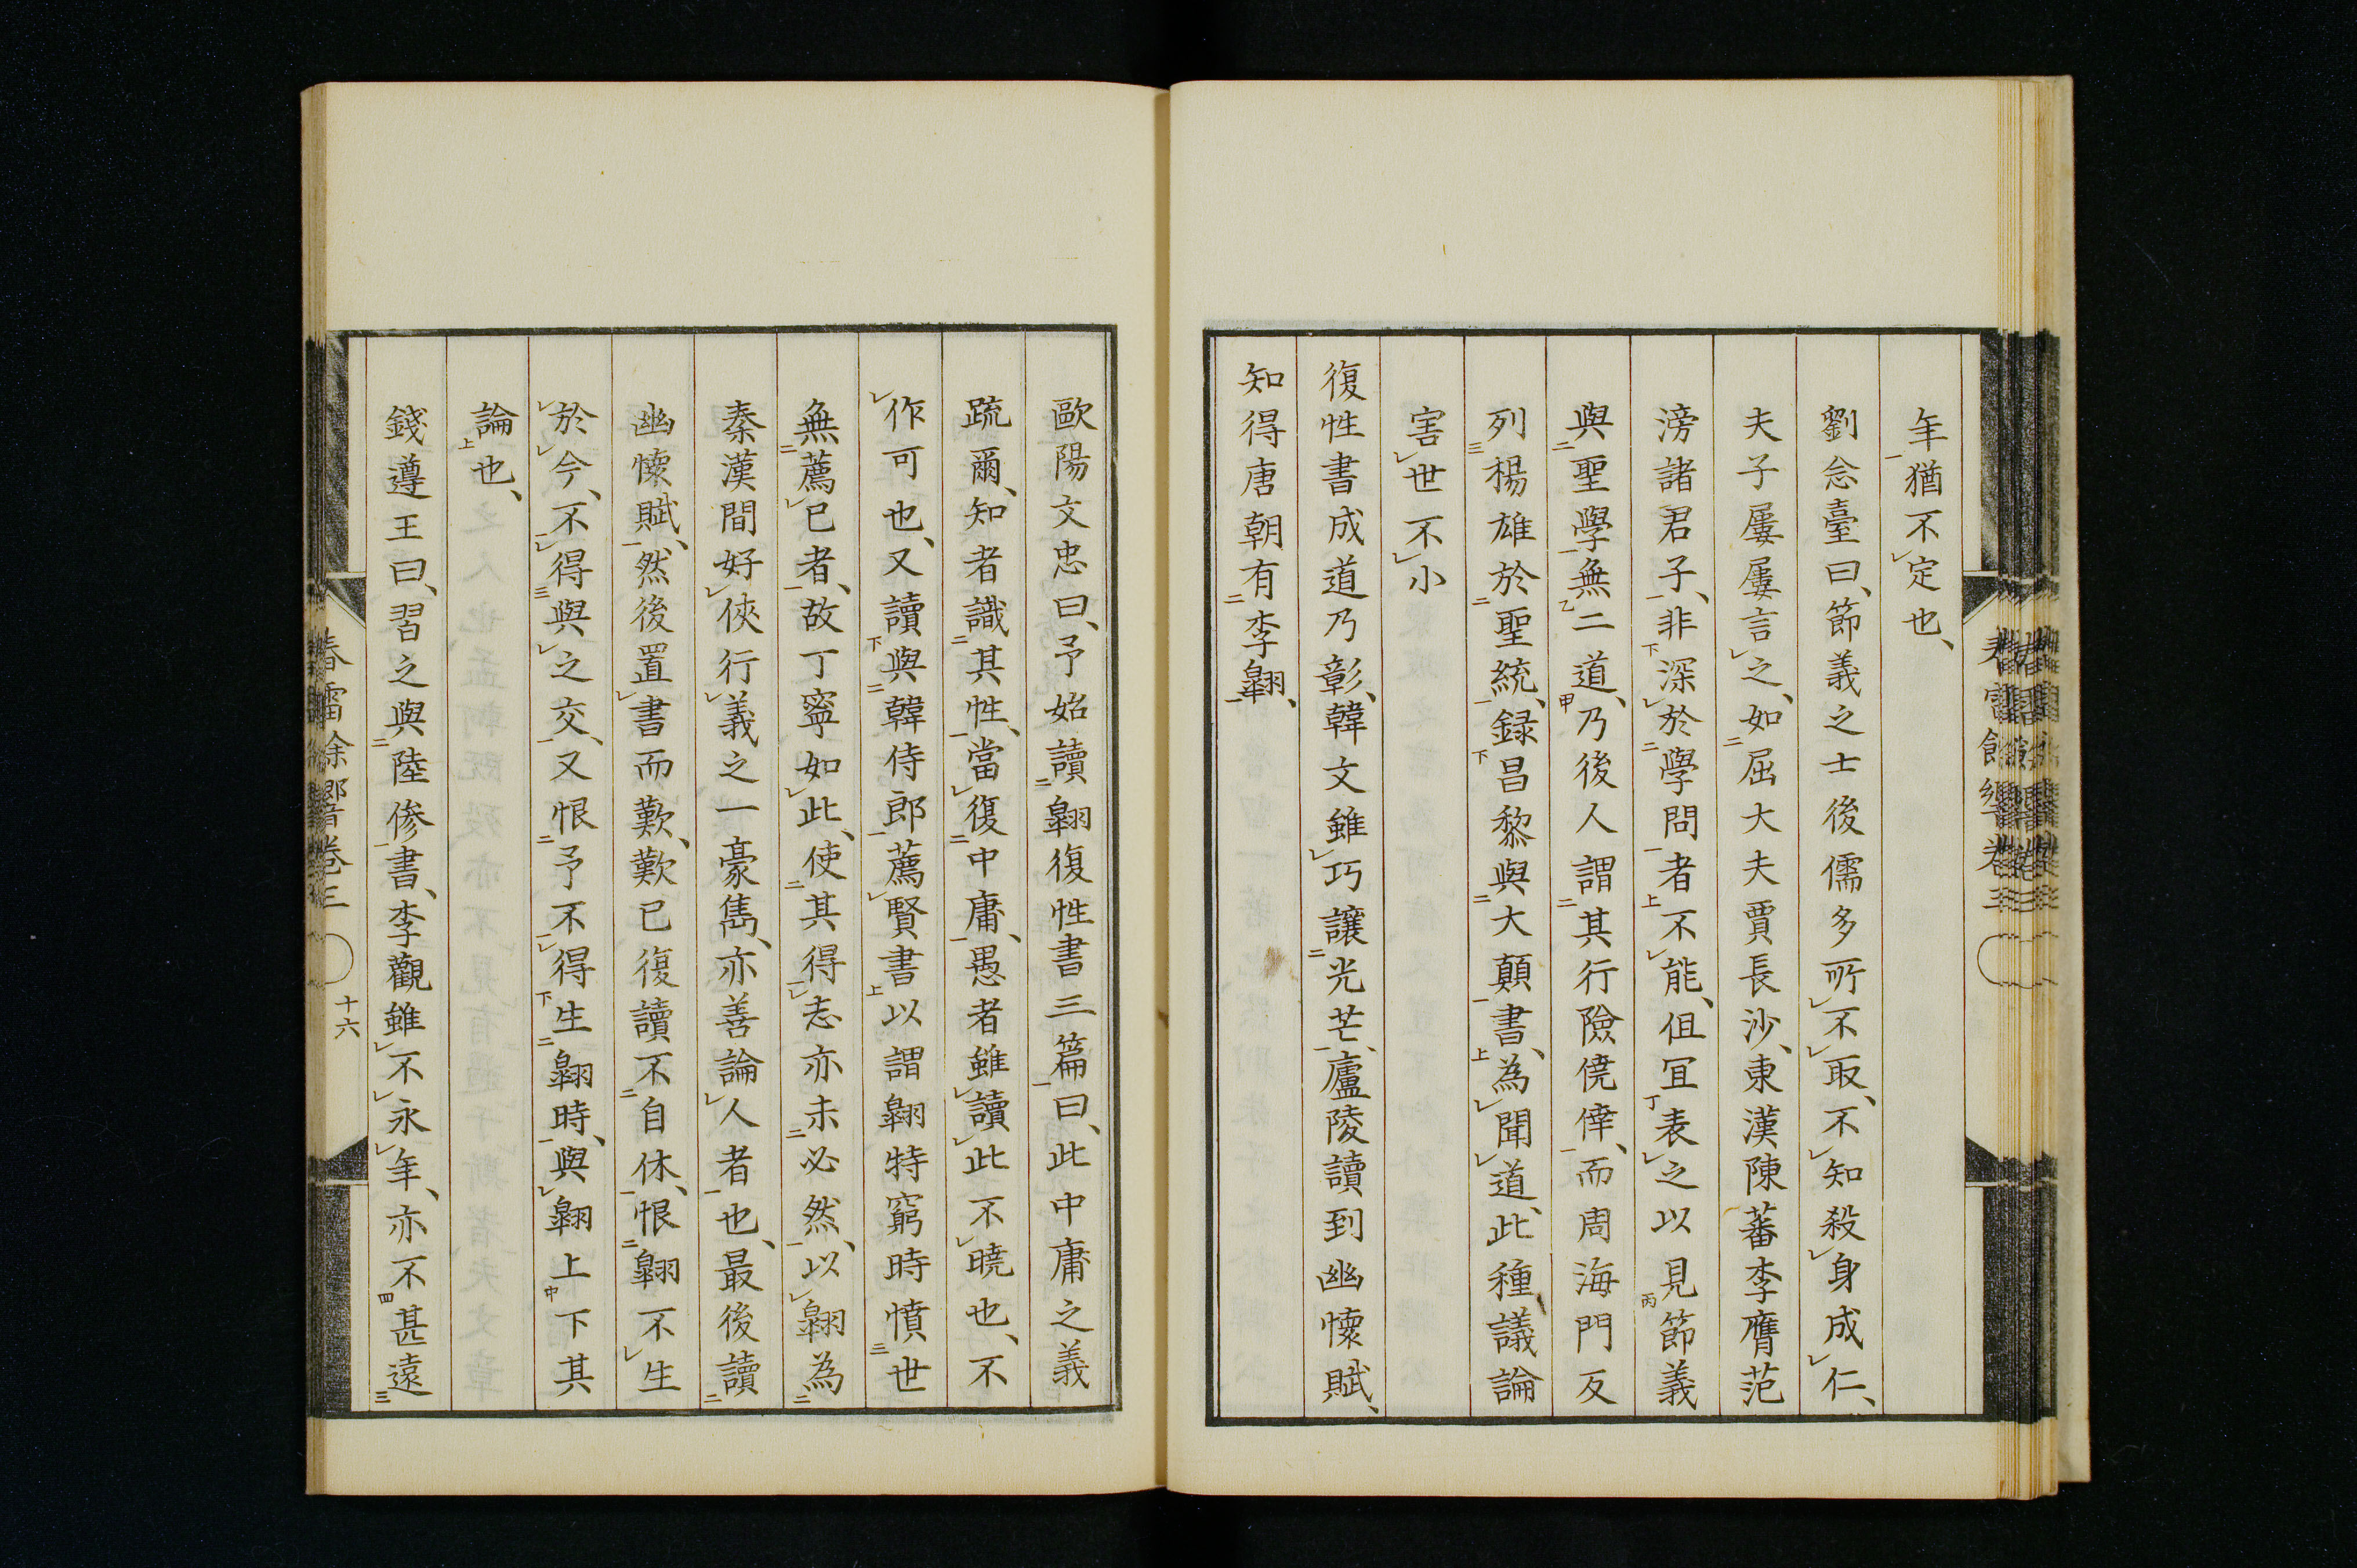 年猶不定也、
劉念臺曰、節義之士後儒多所不取、不知殺身成仁、
夫子屢屢言之、如屈大夫賈長沙、東漢陳蕃李膺范
滂諸君子、非深於學問者不能、但宜表之以見節義
與聖學無二道、乃後人謂其行險僥倖、而周海門反
列楊雄於聖統、録昌黎與大顛書、為聞道、此種議論
害世不小
復性書成道乃彰、韓文雖巧讓光芒、廬陵讀到幽懷賦、
知得唐朝有李翺、
歐陽文忠曰、予始讀翺復性書三篇曰、此中庸之義
疏爾、知者識其性、當復中庸、愚者雖讀此不曉也、不
作可也、又讀與韓侍郎薦賢書以謂翺特窮時憤世
無薦已者、故丁寧如此、使其得志亦未必然、以翺為
秦漢間好俠行義之一豪雋、亦善論人者也、最後讀
幽懷賦、然後置書而歎、歎已復讀不自休、恨翺不生
於今、不得與之交、又恨予不得生翺時、與翺上下其
論也、
錢遵王曰、習之與陸傪書、李觀雖不永年、亦不甚遠
春雷餘響卷三 十六